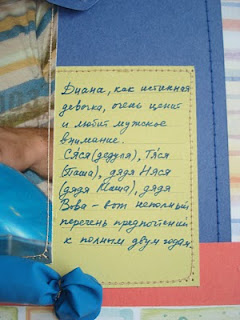 Диана, как истинная
девочка, очень ценит
и любит мужское
внимание.
Ся́ся (дедуля), Тя́ся
(Паша), дядя Няся
(дядя Паша), дядя
Вова - вот неполный
перечень предпочтений
к полным двум годам.